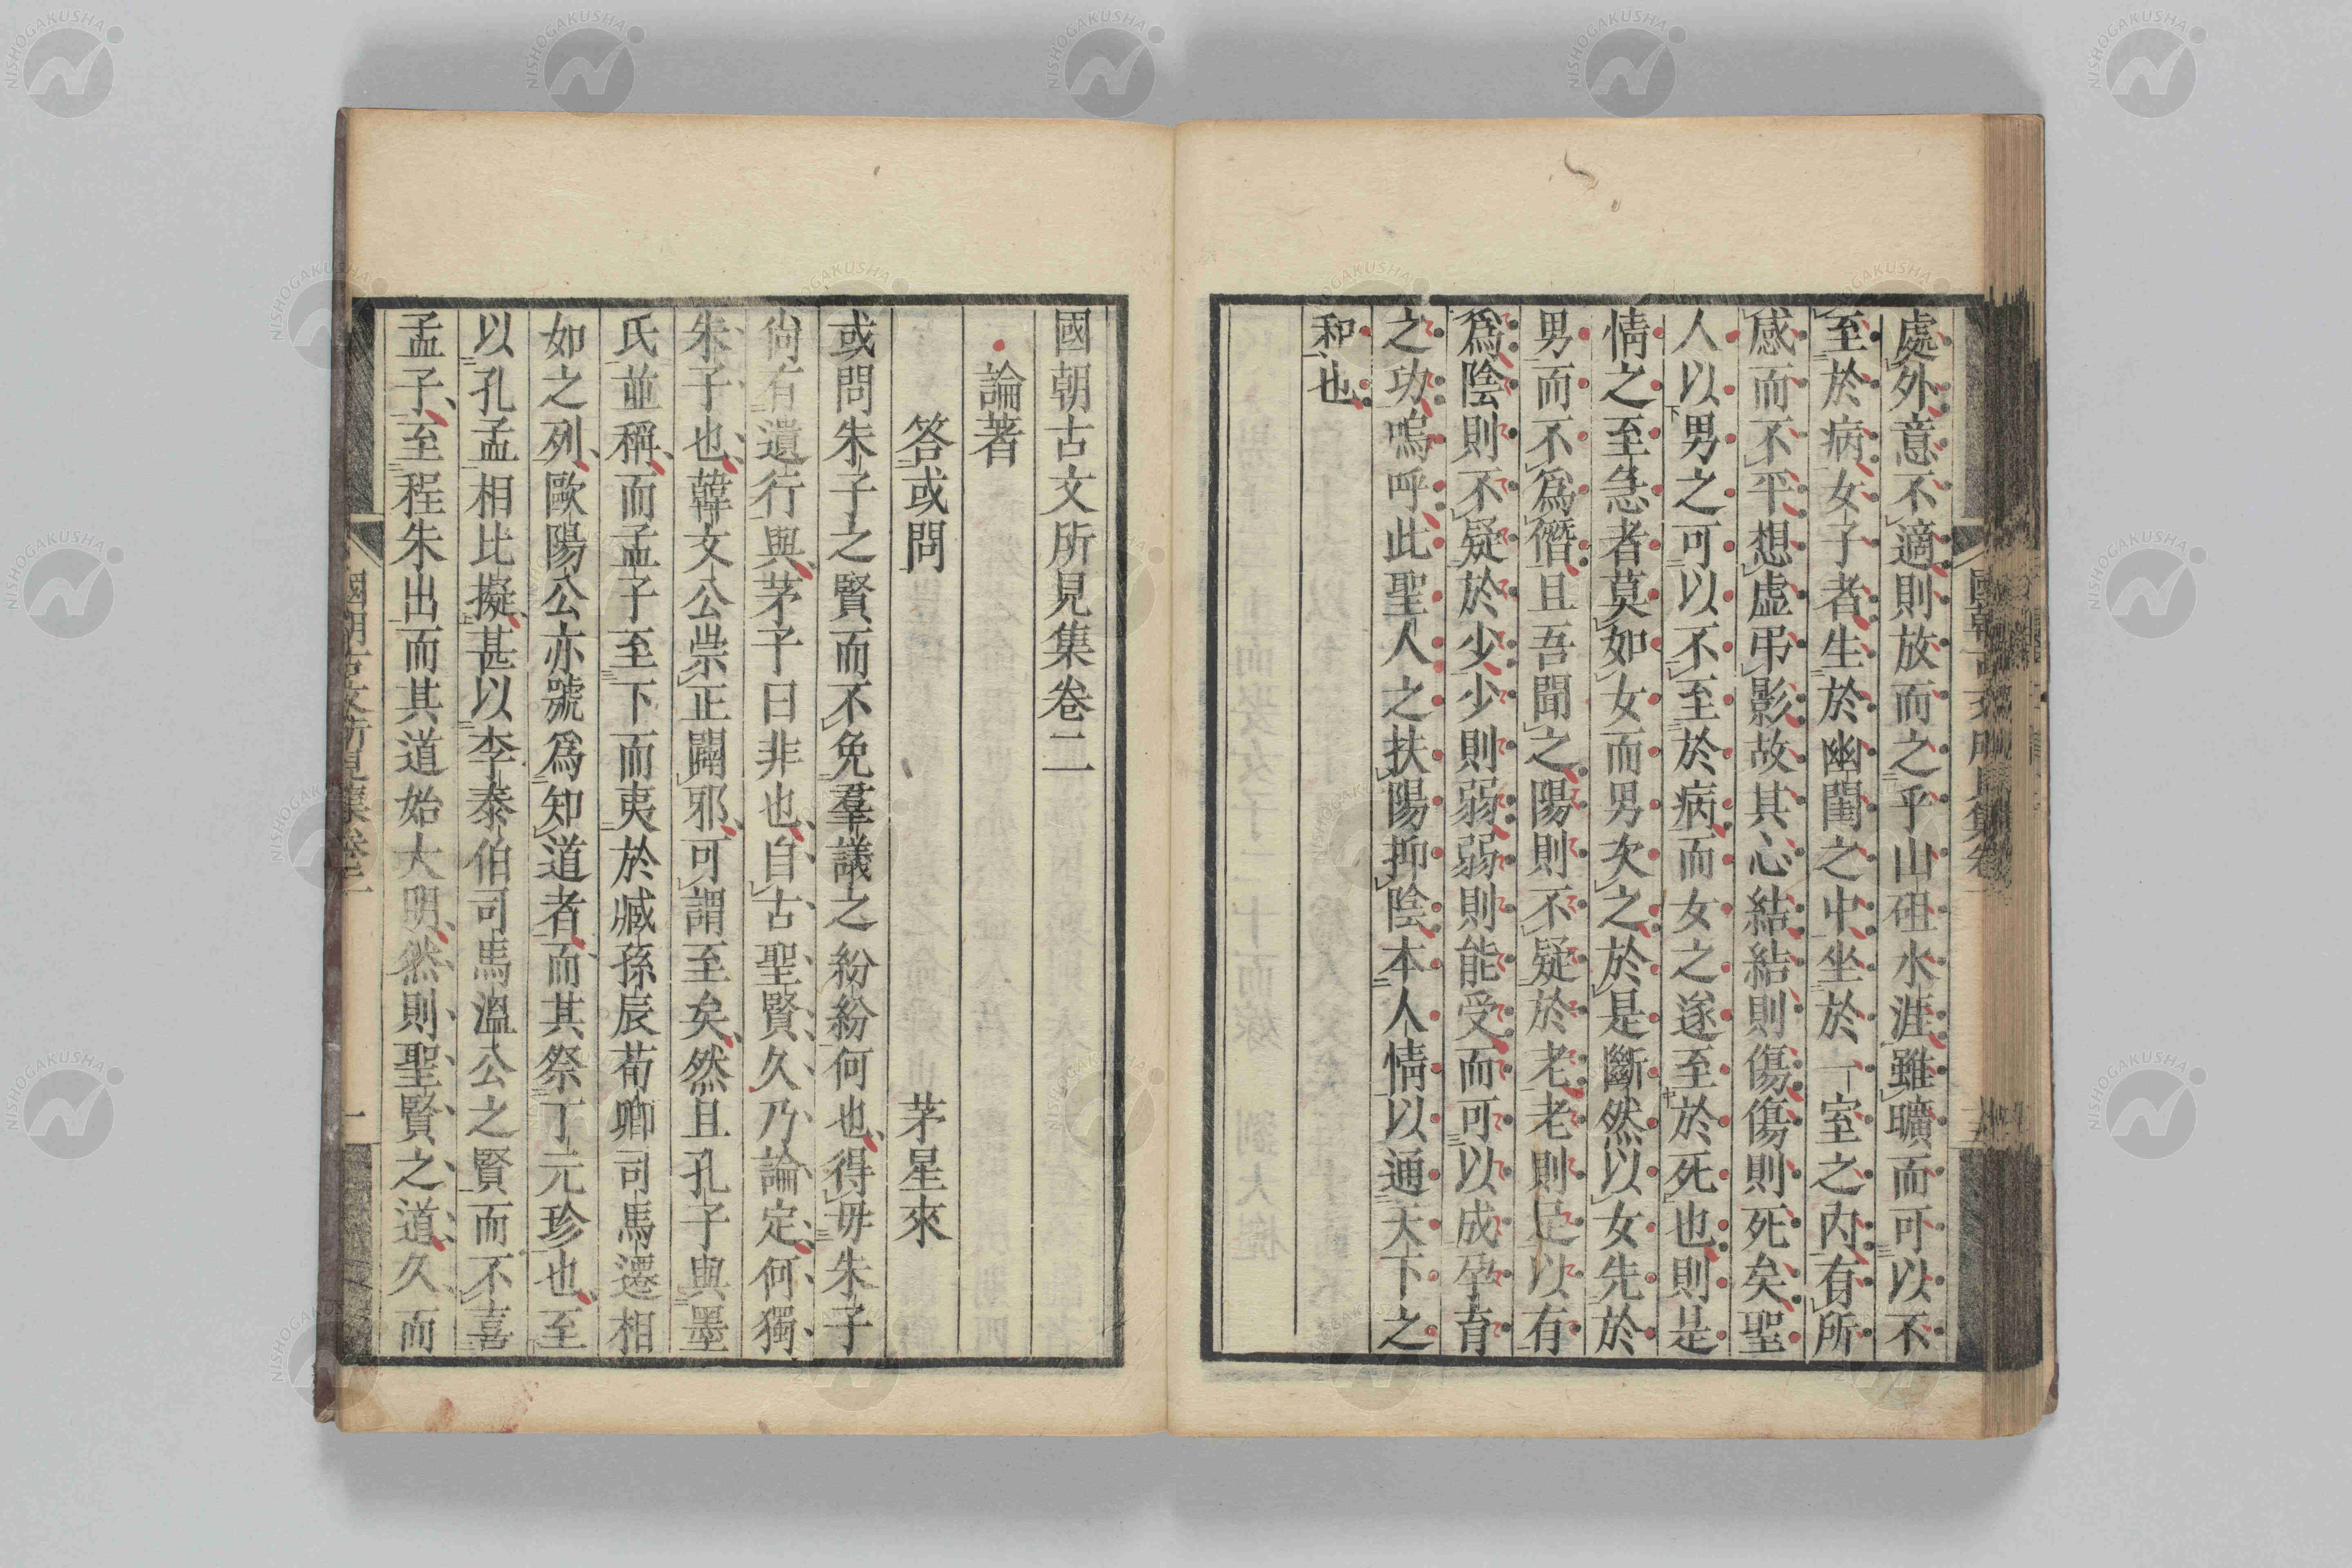 處外意不適則放而之乎山砠水涯雖曠而可以不
至於病女子者生於幽閨之中坐於一室之內有所
感而不平想虛弔影故其心結結則傷傷則死矣聖
人以男之可以不至於病而女之遂至於死也則是
情之至急者莫如女而男次之於是斷然以女先於
男而不爲僭且吾聞之陽則不疑於老老則足以有
爲陰則不疑於少少則弱弱則能受而可以成孕育
之功嗚呼此聖人之扶陽抑陰本人情以通天下之
和也
國朝古文所見集卷二
論著
答或問
茅星來
或問朱子之賢而不免羣議之紛紛何也得毋朱子
尙有遺行與茅子曰非也自古聖賢久乃論定何獨
朱子也韓文公崇正闢邪可謂至矣然且孔子與墨
氏並稱而孟子至下而夷於臧孫辰荀卿司馬遷相
如之列歐陽公亦號爲知道者而其祭丁元珍也至
以孔孟相比擬甚以李泰伯司馬溫公之賢而不喜
孟子至程朱出而其道始大明然則聖賢之道久而
國朝古文所見集卷二
一
NISHOGAKUSHA